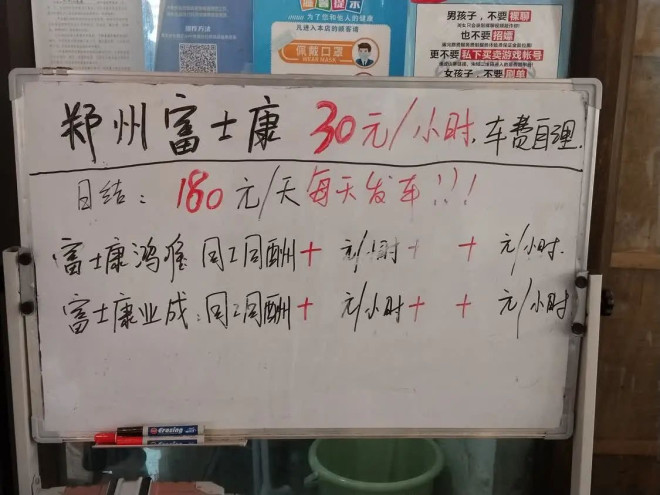 操作提示
温馨提示
为了您和他人的健康
凡进入本店的顾客请
佩戴口罩
WEAR MASK
男孩子，不要裸聊
也不要招嫖
更不要私下买卖游戏帐号
女孩子，不要刷单
郑州富士康 30元/小时.车费自理.
日结：180元/天每天发车!!!
富士康鸿 同工同酬+ 元/小时+ + 元/小时.
富士康业成：同工同酬+ 元/小时+ + 元/小时
Erasing